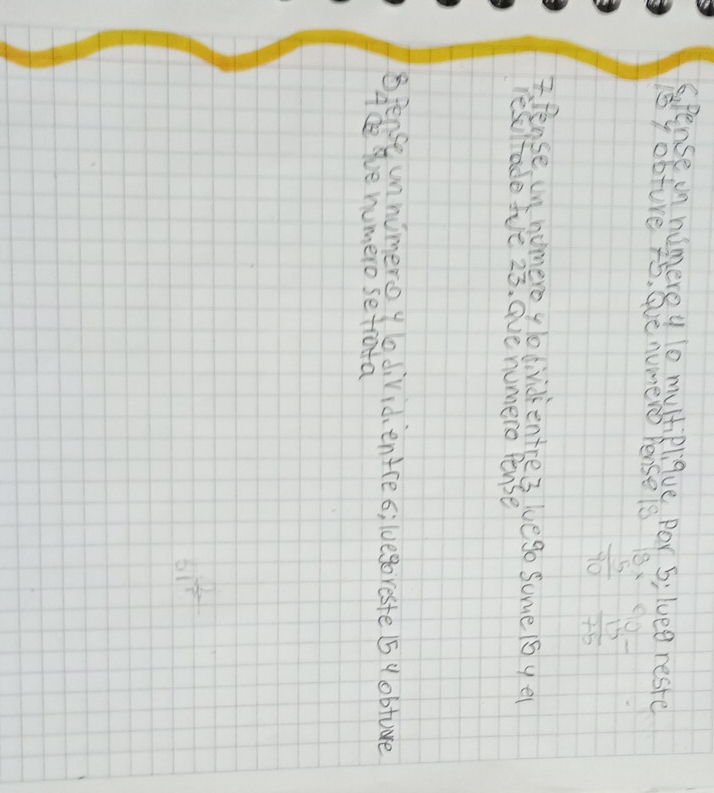 6. Pense un número y lo multiplique por 5; lueg reste
15 y obtuve 75. Que numero Pense 18
18 x
5
90
90 -
15
75
7. Pense un numero y lo dividi entre 3 luego sume 15 y el
resultado fue 23. Que numero Pense
8 Pense un número y lo dividi entre 6; luego reste 15 y obtuve
4 de que numero se trata